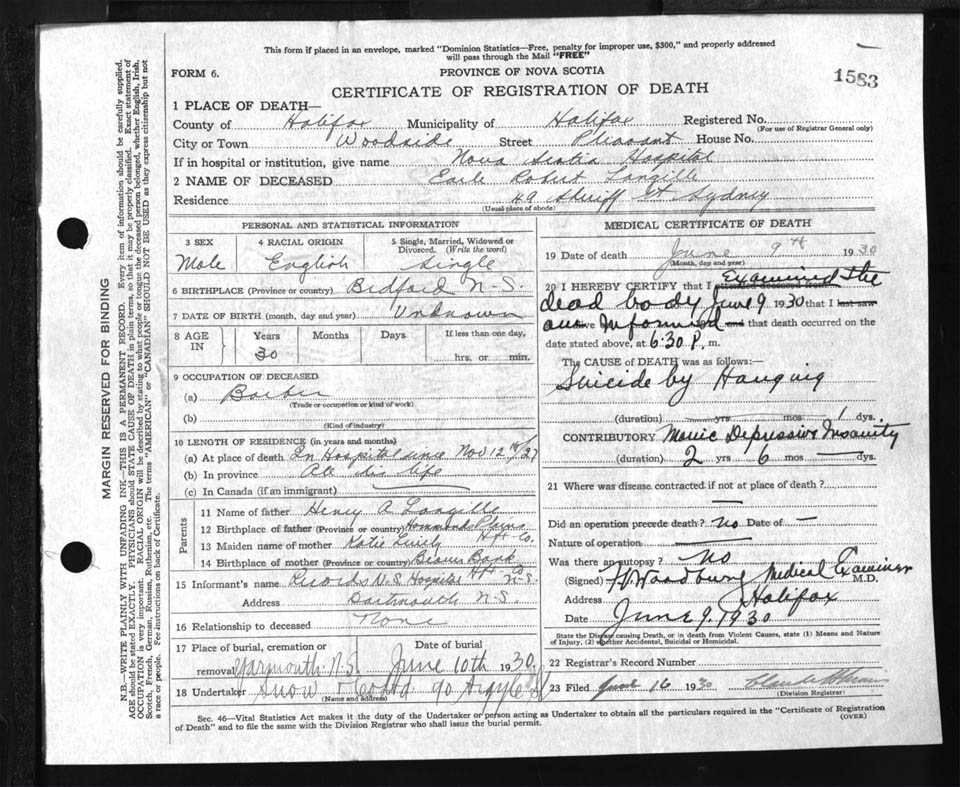 This form if placed in an envelope, marked "Dominion Statistics—Free, penalty for improper use, $300," and properly addressed
will pass through the Mail "FREE"
FORM 6.
PROVINCE OF NOVA SCOTIA
1583
CERTIFICATE OF REGISTRATION OF DEATH
1 PLACE OF DEATH—
County of Halifax Municipality of Halifax Registered No.
(For use of Registrar General only)
City or Town Woodside Street Pleasant House No.
If in hospital or institution, give name Nova Scotia Hospital
2 NAME OF DECEASED Earle Robert Langille
Residence 49 Sheriff St Sydney
(Usual place of abode)
PERSONAL AND STATISTICAL INFORMATION
3 SEX 4 RACIAL ORIGIN 5 Single, Married, Widowed or
Divorced. (Write the word)
Male English Single
6 BIRTHPLACE (Province or country) Bedford N-S.
7 DATE OF BIRTH (month, day and year) Unknown
8 AGE IN Years Months Days If less than one day,
30 hrs. or min.
9 OCCUPATION OF DECEASED
(a) Barber
(Trade or occupation or kind of work)
(b)
(Kind of industry)
10 LENGTH OF RESIDENCE (in years and months)
(a) At place of death In Hospital since Nov 12th/27
(b) In province All his life
(c) In Canada (if an immigrant)
Parents
11 Name of father Henry A Langille
12 Birthplace of father (Province or country) Hammonds Plains
Hfx Co.
13 Maiden name of mother Katie Lively
14 Birthplace of mother (Province or country) Beaver Bank
Hfx Co N-S.
15 Informant's name Records N.S. Hospital
Address Dartmouth N-S.
16 Relationship to deceased None
17 Place of burial, cremation or Date of burial
removal Yarmouth N.S. June 10th 1930
18 Undertaker Snow & Co Ltd 90 Argyle St
(Name and address)
MEDICAL CERTIFICATE OF DEATH
19 Date of death June 9th 1930
(Month, day and year)
20 I HEREBY CERTIFY that I attended deceased from Examined the
dead body June 9 1930 that I last saw
am Informed and that death occurred on
date stated above, at 6:30 P. m.
The CAUSE of DEATH was as follows:—
Suicide by Hanging
(duration) yrs mos 1 dys.
CONTRIBUTORY Manic Depressive Insanity
(duration) 2 yrs 6 mos dys.
21 Where was disease contracted if not at place of death?
Did an operation precede death? no Date of —
Nature of operation
Was there an autopsy? no
(Signed) Woodbury Medical Examiner M.D.
Address Halifax
Date June 9. 1930
State the Disease causing Death, or in death from Violent Causes, state (1) Means and Nature
of Injury, (2) whether Accidental, Suicidal or Homicidal.
22 Registrar's Record Number
23 Filed June 16 1930
(Division Registrar)
Sec. 46—Vital Statistics Act makes it the duty of the Undertaker or person acting as Undertaker to obtain all the particulars required in the "Certificate of Registration
of Death" and to file the same with the Division Registrar who shall issue the burial permit.
(OVER)
MARGIN RESERVED FOR BINDING
N.B.—WRITE PLAINLY WITH UNFADING INK—THIS IS A PERMANENT RECORD. Every item of information should be carefully supplied.
AGE should be stated EXACTLY. PHYSICIANS should STATE CAUSE OF DEATH in plain terms, so that it may be properly classified. Exact statement of
OCCUPATION is very important. RACIAL ORIGIN will be described by stating to what people or tongue the deceased person belonged, whether English, Irish,
Scotch, French, German, Russian, Ruthenian, etc. The terms "AMERICAN" or "CANADIAN" SHOULD NOT BE USED as they express citizenship but not
a race or people. See instructions on back of Certificate.